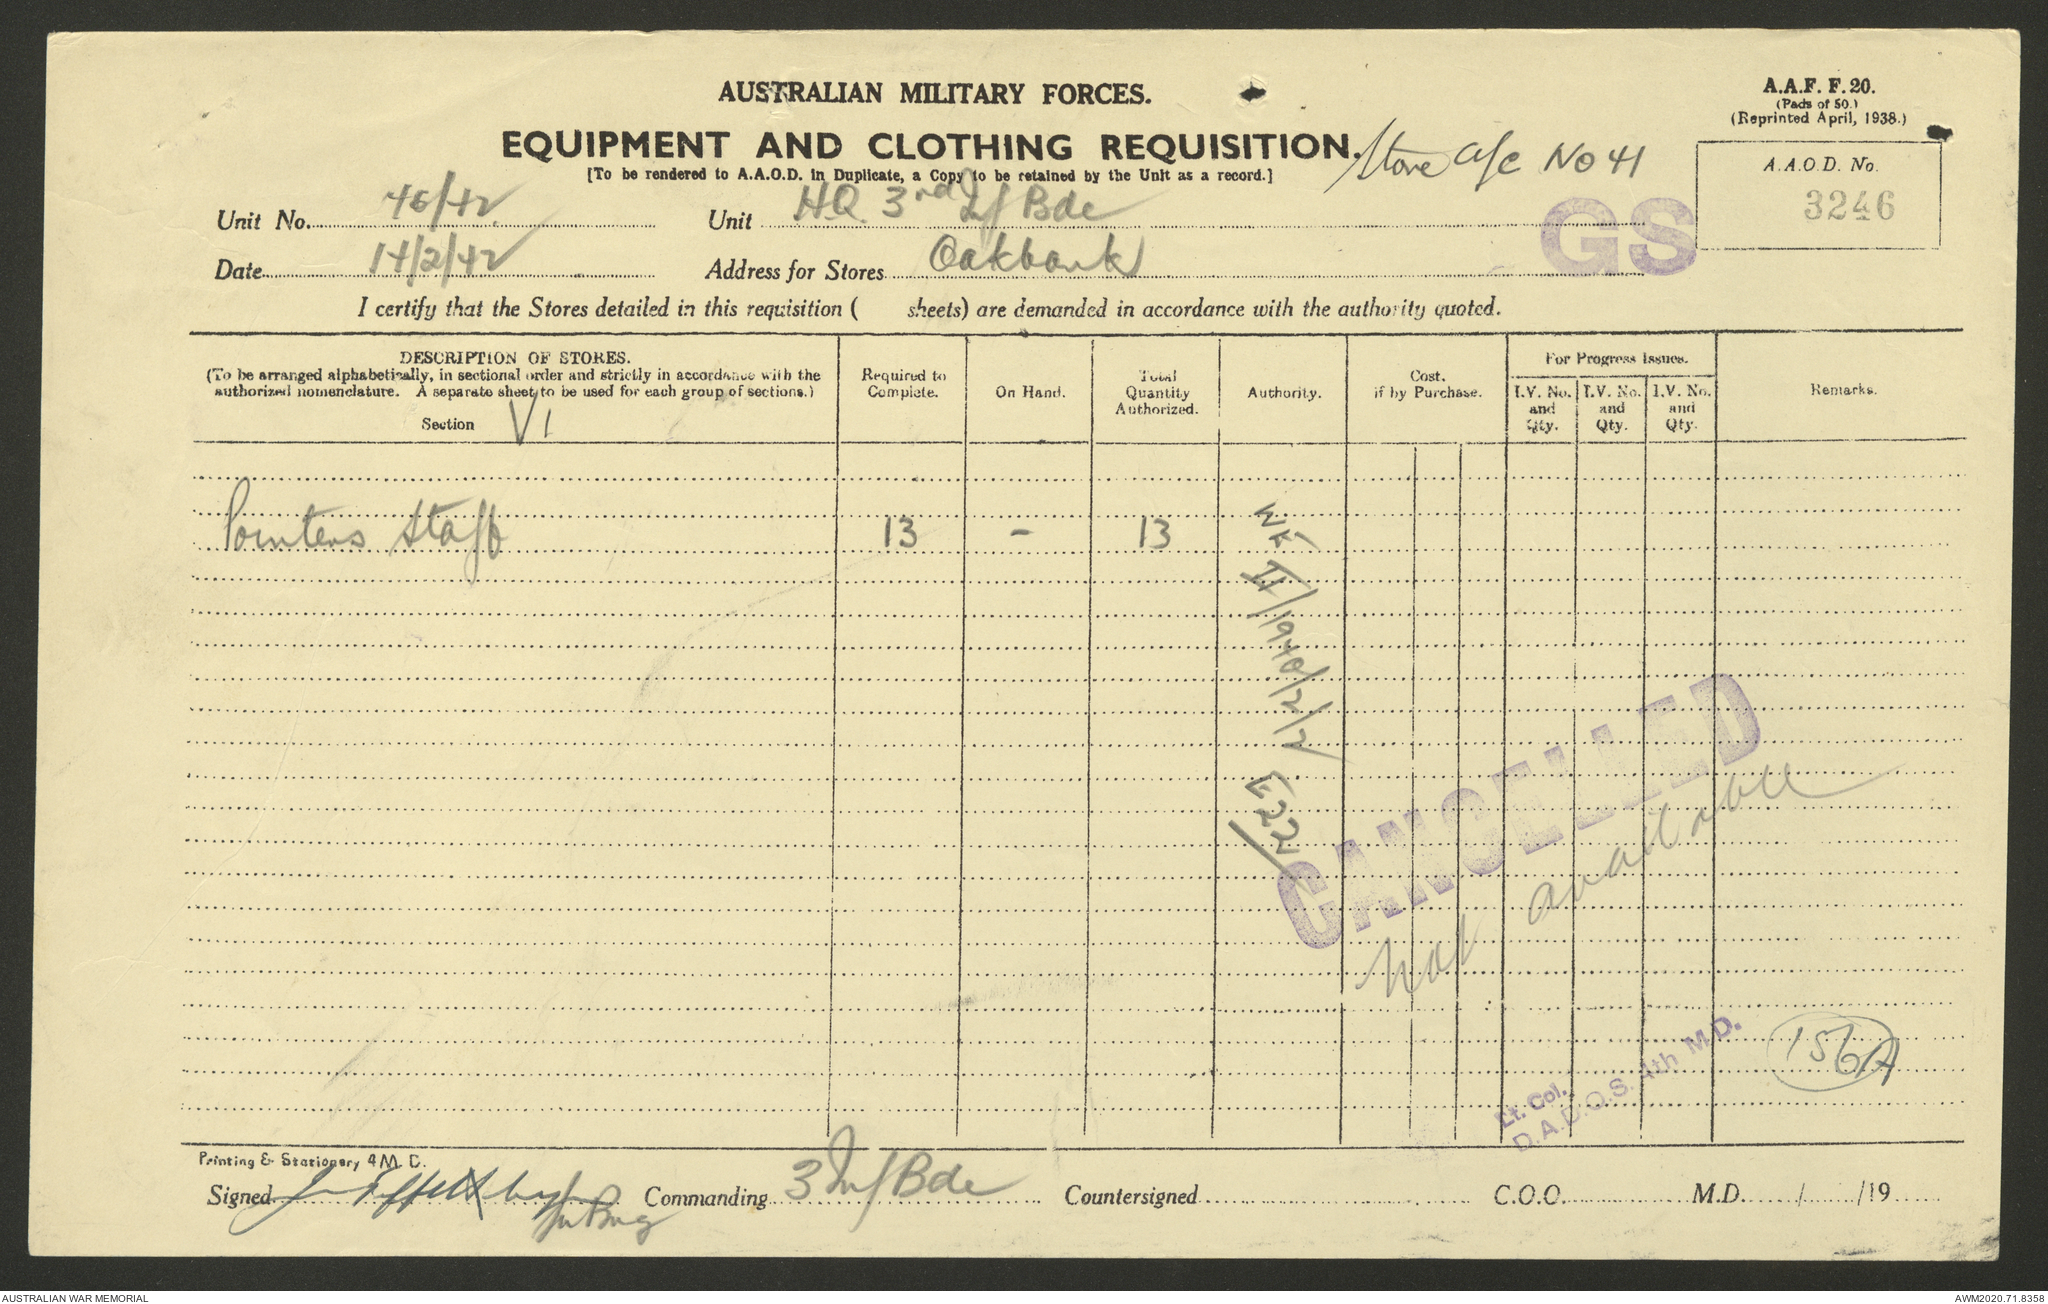 AUSTRALIAN MILITARY FORCES.
A.A.F. F.20.
(Pads of 50.)
(Reprinted April, 1938.)
EQUIPMENT AND CLOTHING REQUISITION.
Store A/c No 41
[To be rendered to A.A.O.D. in Duplicate, a Copy to be retained by the Unit as a record.]
A.A.O.D. No.
3246
Unit No. 46/42 Unit H.Q. 3rd Inf Bde
GS
Date 14/2/42 Address for Stores Oakbank
I certify that the Stores detailed in this requisition ( sheets) are demanded in accordance with the authority quoted.
DESCRIPTION OF STORES.
(To be arranged alphabetically, in sectional order and strictly in accordance with the
authorized nomenclature. A separate sheet to be used for each group of sections.)
Section VI
Required to
Complete.
On Hand.
Total
Quantity
Authorized.
Authority.
Cost.
if by Purchase.
For Progress Issues.
I.V. No. and Qty.
I.V. No. and Qty.
I.V. No. and Qty.
Remarks.
Pointers Staff 13 - 13
WE II/1940/2/2 E22
CANCELLED
Not available
Lt. Col.
D.A.D.O.S. 4th M.D.
156A
Printing & Stationery 4 M.D.
Signed Commanding 3 Inf Bde Countersigned C.O.O. M.D. / /19
AUSTRALIAN WAR MEMORIAL
AWM2020.71.8358